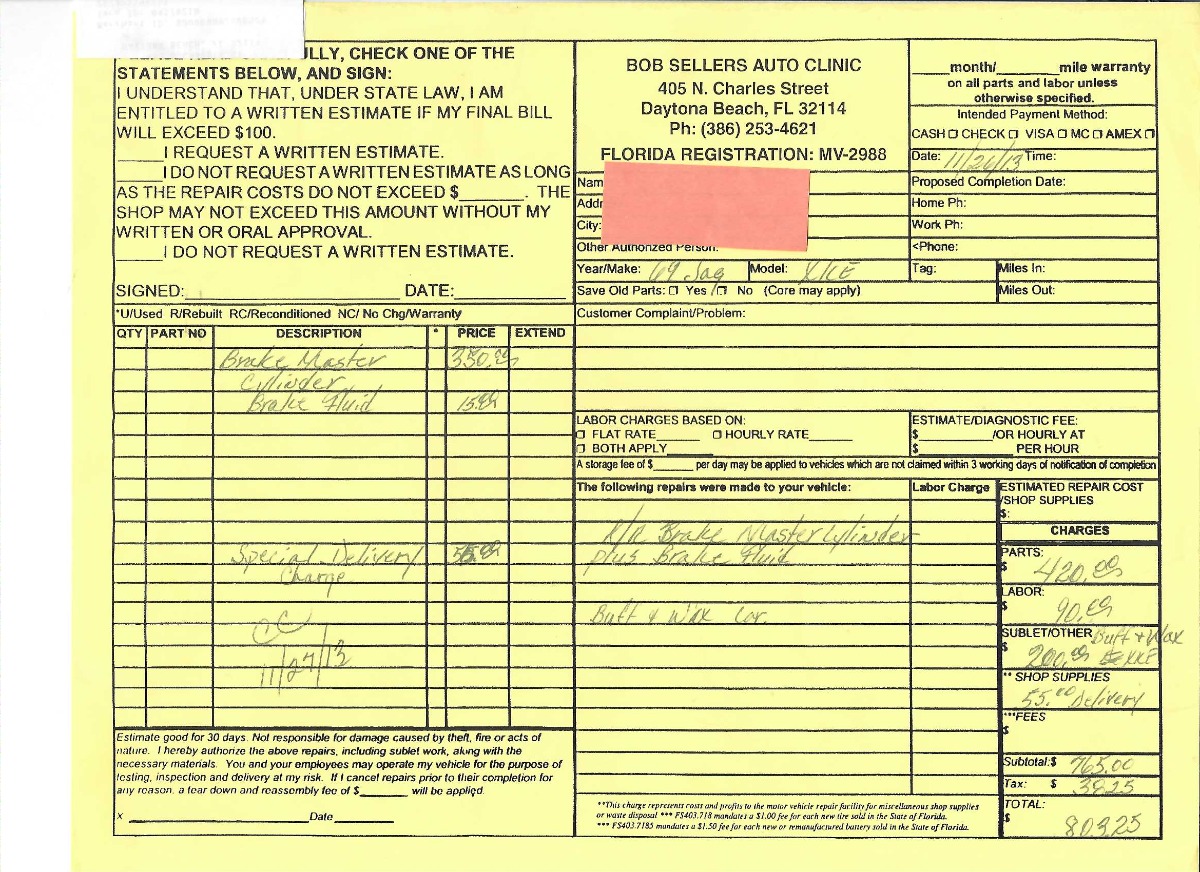 ULLY, CHECK ONE OF THE
STATEMENTS BELOW, AND SIGN:
I UNDERSTAND THAT, UNDER STATE LAW, I AM
ENTITLED TO A WRITTEN ESTIMATE IF MY FINAL BILL
WILL EXCEED $100.
_____I REQUEST A WRITTEN ESTIMATE.
_____I DO NOT REQUEST A WRITTEN ESTIMATE AS LONG
AS THE REPAIR COSTS DO NOT EXCEED $_______. THE
SHOP MAY NOT EXCEED THIS AMOUNT WITHOUT MY
WRITTEN OR ORAL APPROVAL.
_____I DO NOT REQUEST A WRITTEN ESTIMATE.
SIGNED:____________________ DATE:__________
BOB SELLERS AUTO CLINIC
405 N. Charles Street
Daytona Beach, FL 32114
Ph: (386) 253-4621
FLORIDA REGISTRATION: MV-2988
Nam
Addr
City:
Other Authorized Person:
Year/Make: 69 Jag Model: XKE
Save Old Parts: □ Yes /□ No (Core may apply)
____month/_______mile warranty
on all parts and labor unless
otherwise specified.
Intended Payment Method:
CASH □ CHECK □ VISA □ MC □ AMEX □
Date: 11/26/13 Time:
Proposed Completion Date:
Home Ph:
Work Ph:
<Phone:
Tag: Miles In:
Miles Out:
*U/Used R/Rebuilt RC/Reconditioned NC/ No Chg/Warranty
QTY PART NO DESCRIPTION * PRICE EXTEND
Brake Master 350.00
Cylinder
Brake Fluid 15.00
Special Delivery 55.00
Charge
CC
11/27/13
Customer Complaint/Problem:
LABOR CHARGES BASED ON:
□ FLAT RATE______ □ HOURLY RATE______
□ BOTH APPLY_______
ESTIMATE/DIAGNOSTIC FEE:
$__________/OR HOURLY AT
$_____________ PER HOUR
A storage fee of $_______ per day may be applied to vehicles which are not claimed within 3 working days of notification of completion
The following repairs were made to your vehicle: Labor Charge
R/R Brake Master Cylinder
plus Brake Fluid
Buff & Wax Car.
ESTIMATED REPAIR COST
/SHOP SUPPLIES
$:
CHARGES
PARTS:
$ 420.00
LABOR:
$ 90.00
SUBLET/OTHER Buff + Wax
$ 200.00 XKE
** SHOP SUPPLIES
55.00 Delivery
***FEES
$
Subtotal:$ 765.00
Tax: $ 38.25
TOTAL:
$ 803.25
Estimate good for 30 days. Not responsible for damage caused by theft, fire or acts of
nature. I hereby authorize the above repairs, including sublet work, along with the
necessary materials. You and your employees may operate my vehicle for the purpose of
testing, inspection and delivery at my risk. If I cancel repairs prior to their completion for
any reason, a tear down and reassembly fee of $________ will be applied.
x ______________________________Date __________
**This charge represents costs and profits to the motor vehicle repair facility for miscellaneous shop supplies
or waste disposal *** FS403.718 mandates a $1.00 fee for each new tire sold in the State of Florida.
*** FS403.7185 mandates a $1.50 fee for each new or remanufactured battery sold in the State of Florida.